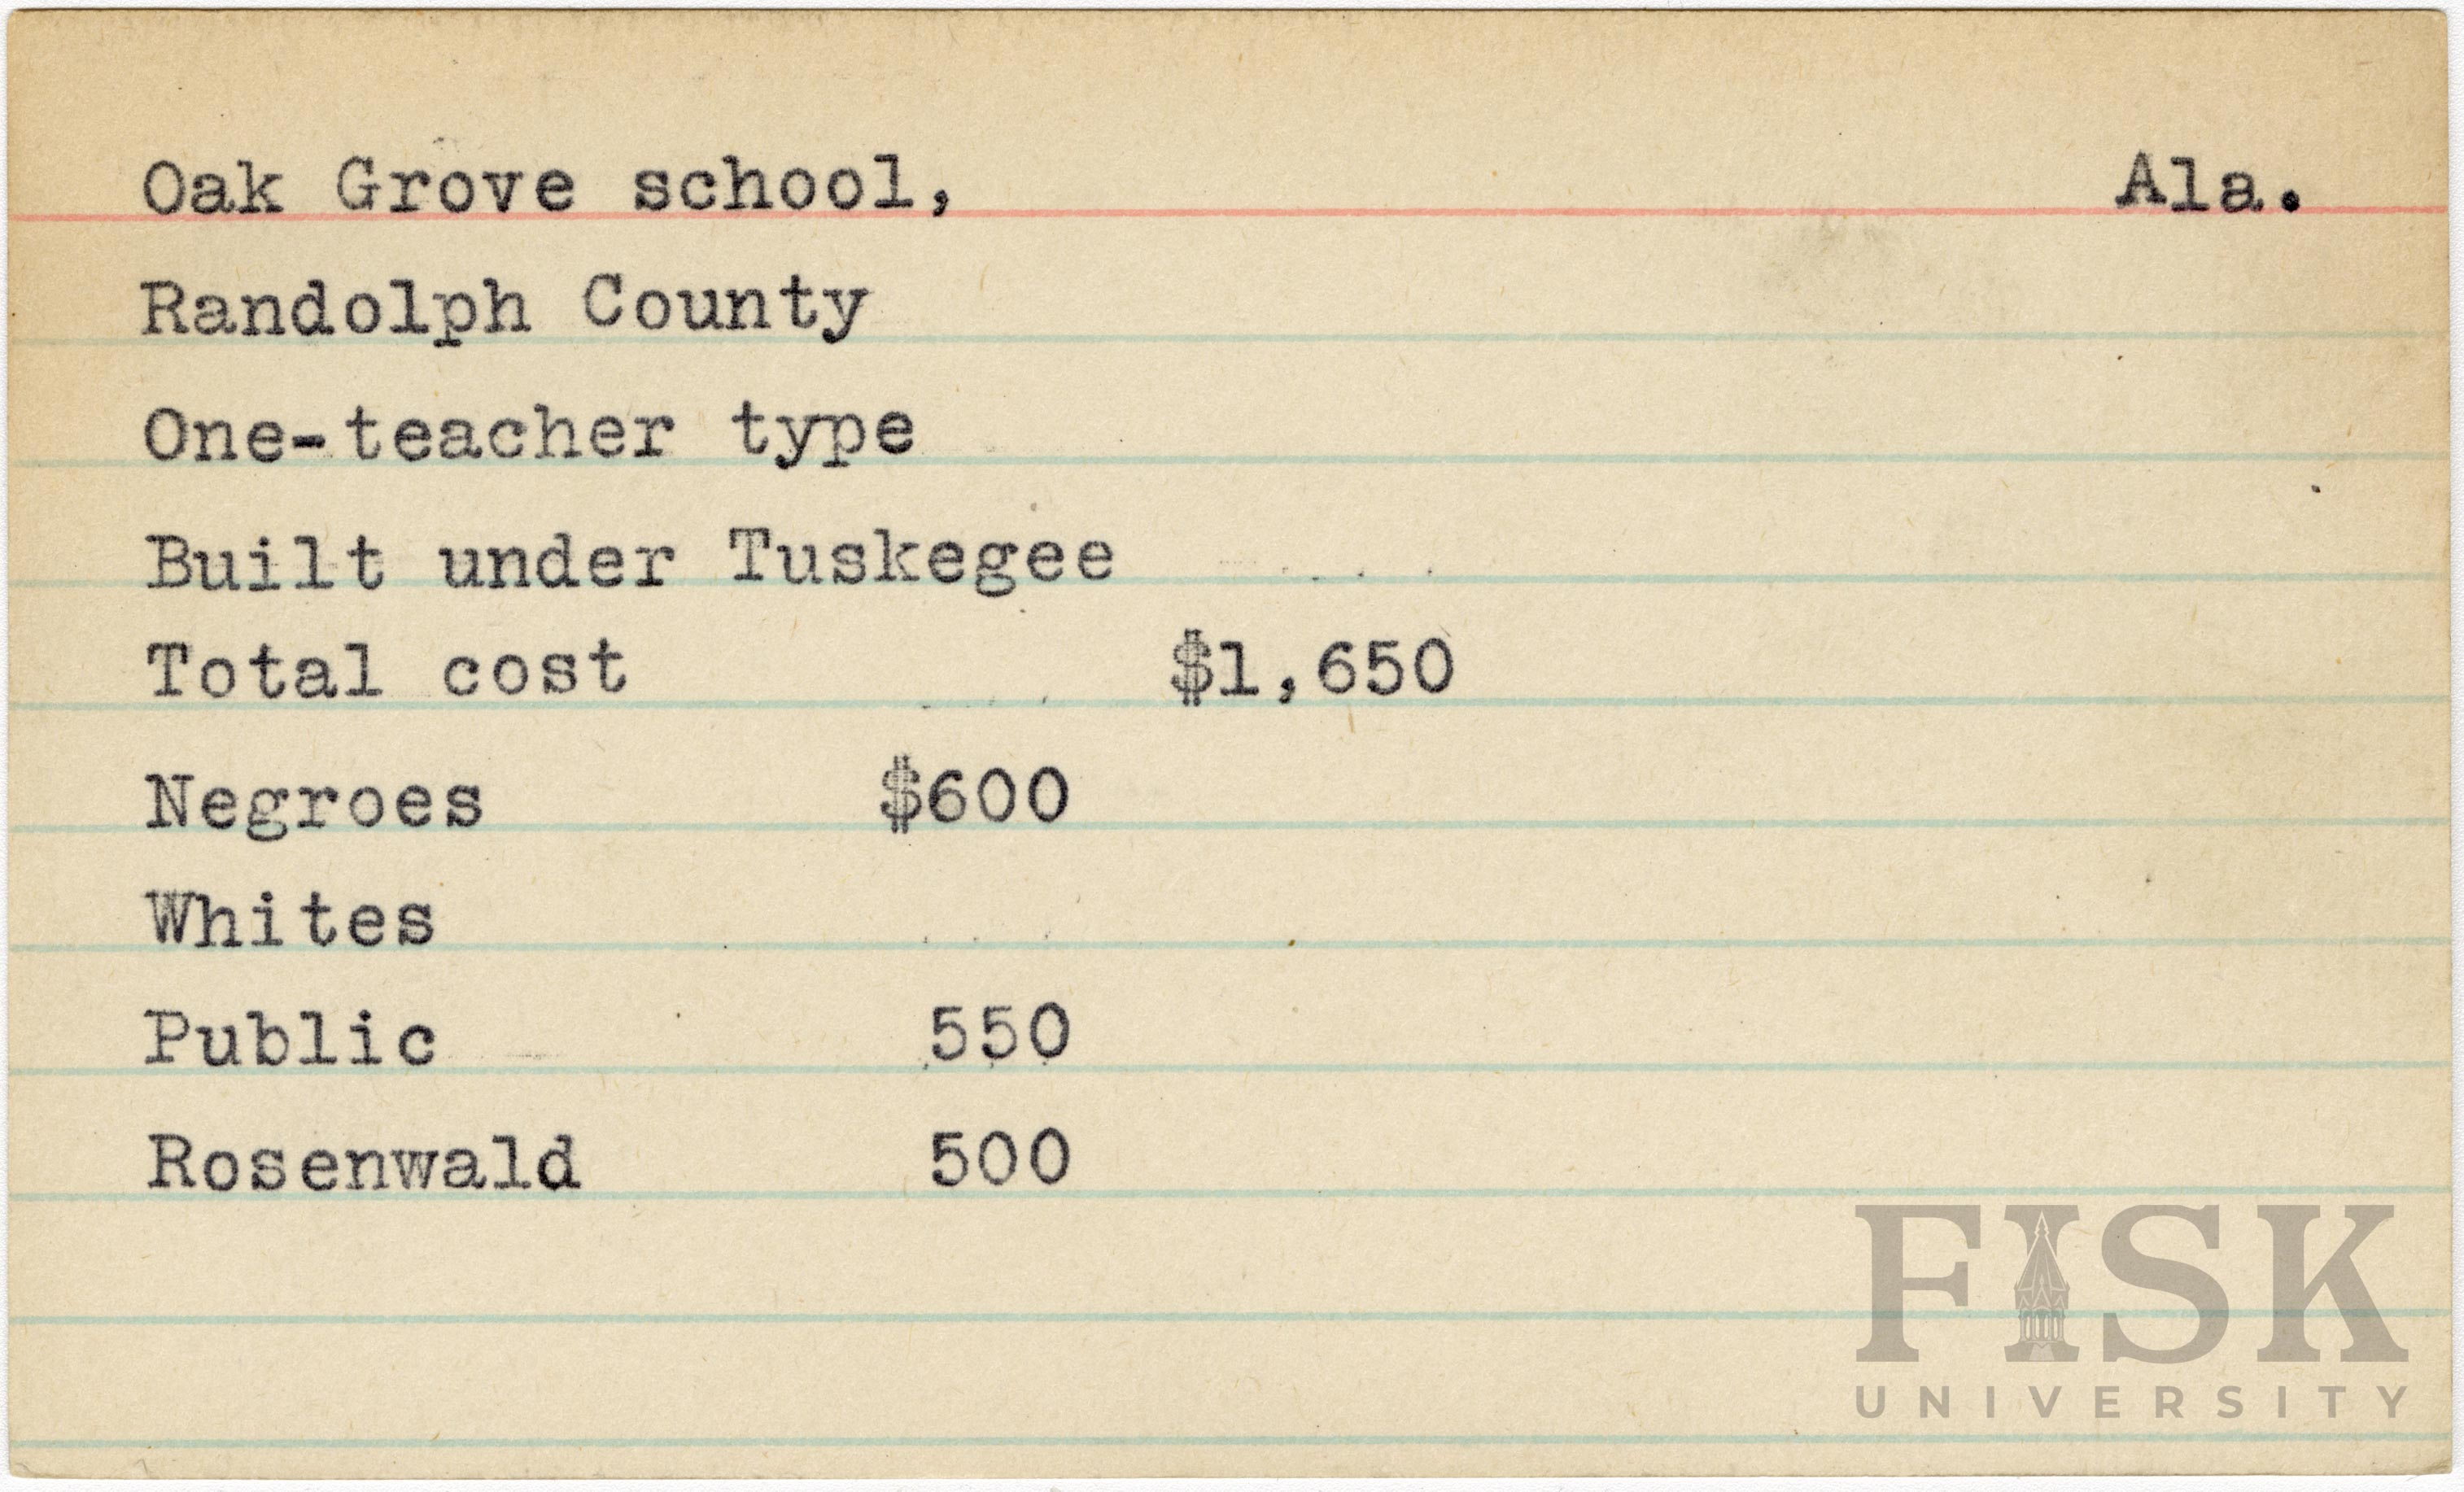 Oak Grove school, Ala.
Randolph County
One-teacher type
Built under Tuskegee
Total cost $1,650
Negroes $600
Whites
Public 550
Rosenwald 500
FISK
UNIVERSITY